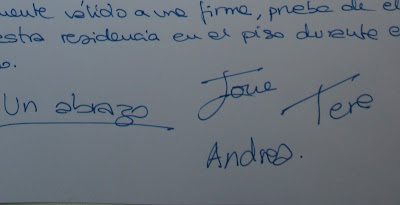 mente válido a una firma, prueba de el
estra residencia en el piso durante e
o.
Un abrazo
Tere
Andrea.